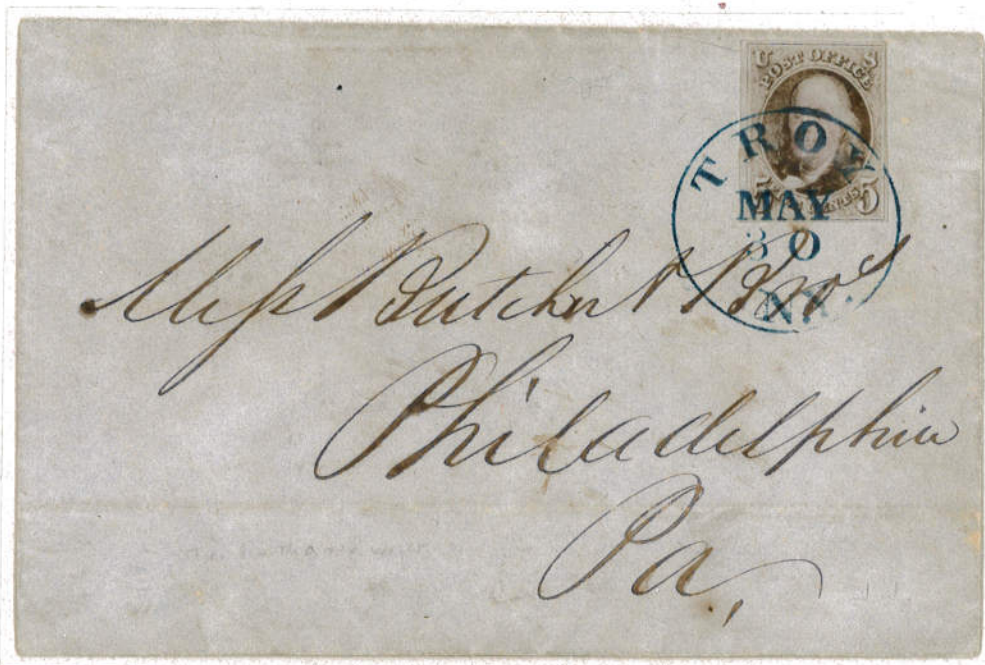 U S
POST OFFICE
5 CENTS 5
TROY
MAY
30
N.Y.
Mess Butcher & Bros
Philadelphia
Pa,